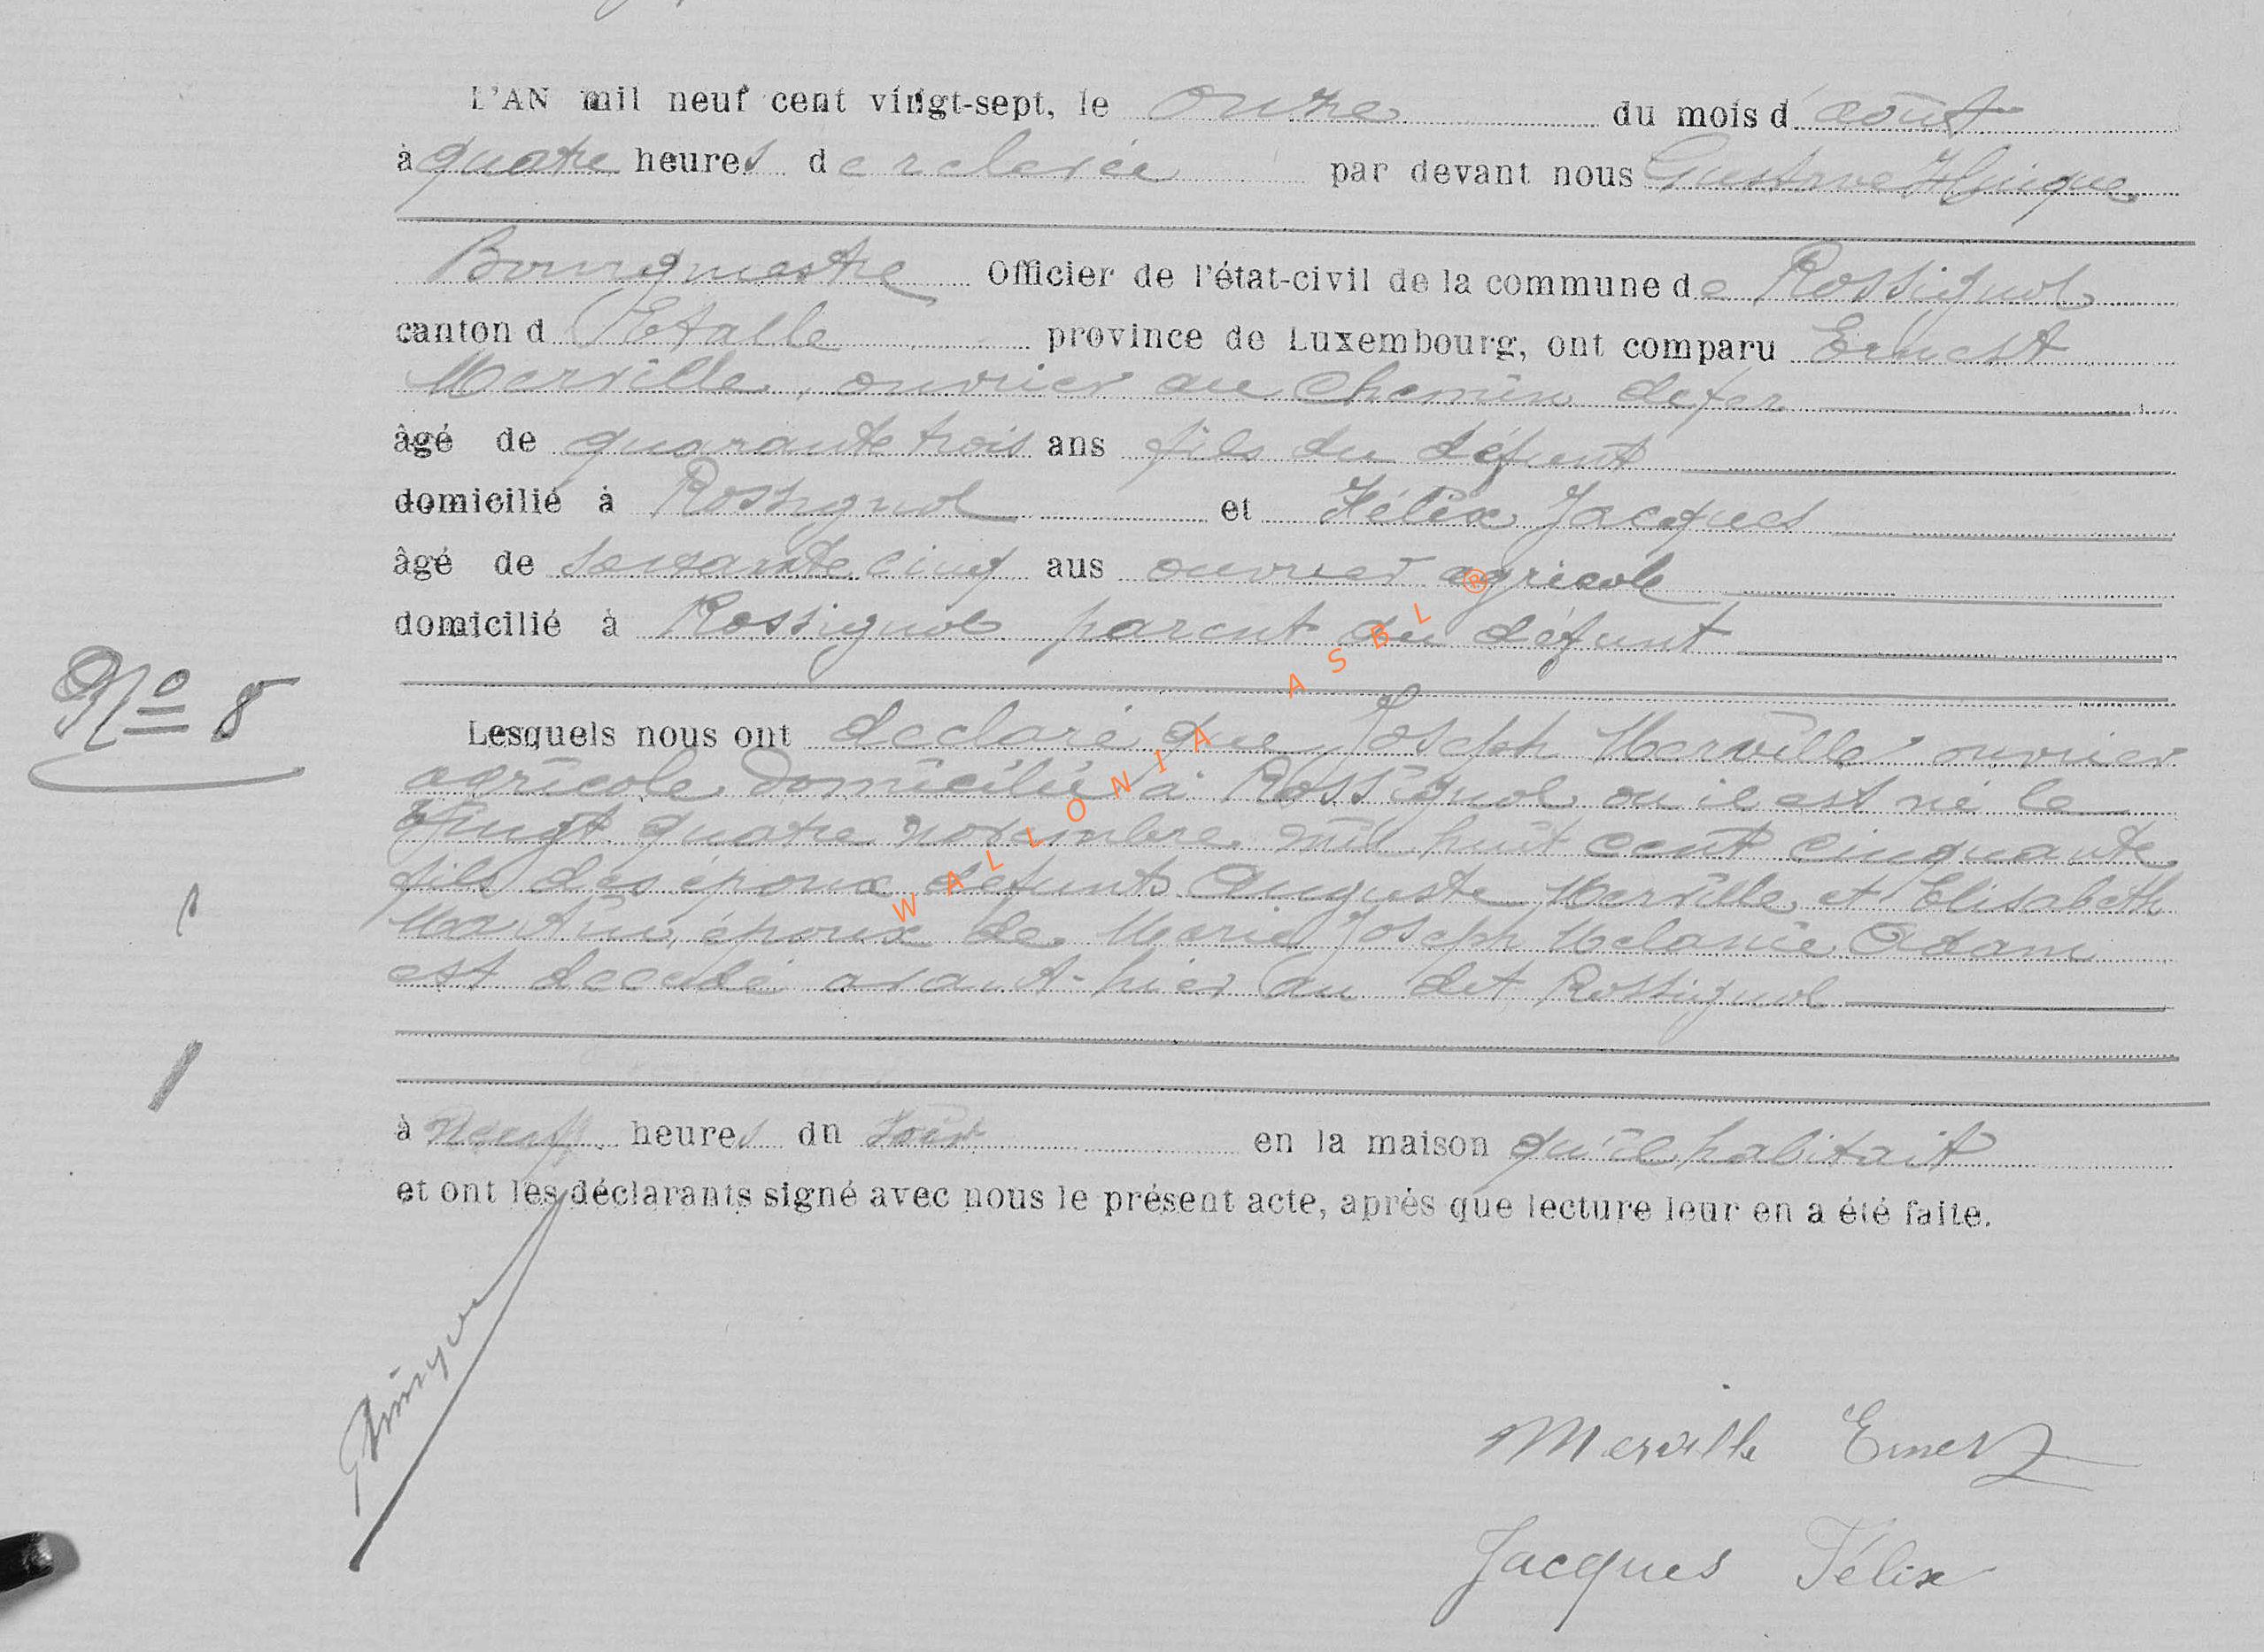 L'AN mil neuf cent vingt-sept, le onze du mois d'août
à quatre heures de relevée par devant nous Gustave Hinque
Bourgmestre Officier de l'état-civil de la commune de Rossignol
canton d'Etalle province de Luxembourg, ont comparu Ernest
Merville, ouvrier au chemin de fer
âgé de quarante trois ans fils du défunt
domicilié à Rossignol et Félix Jacques
âgé de soixante cinq ans ouvrier agricole
domicilié à Rossignol parent du défunt
N° 8
Lesquels nous ont declaré que Joseph Merville ouvrier
agricole domicilié à Rossignol ou il est né le
Vingt quatre novembre mil huit cent cinquante
fils des époux défunts Auguste Merville et Elisabeth
Martin, époux de Marie Joseph Melanie Adam
est decedé avant-hier au dit Rossignol
à neuf heures du soir en la maison qu'il habitait
et ont les déclarants signé avec nous le présent acte, après que lecture leur en a été faite.
GHinque
Merville Ernest
Jacques Félix
WALLONIA ASBL ®